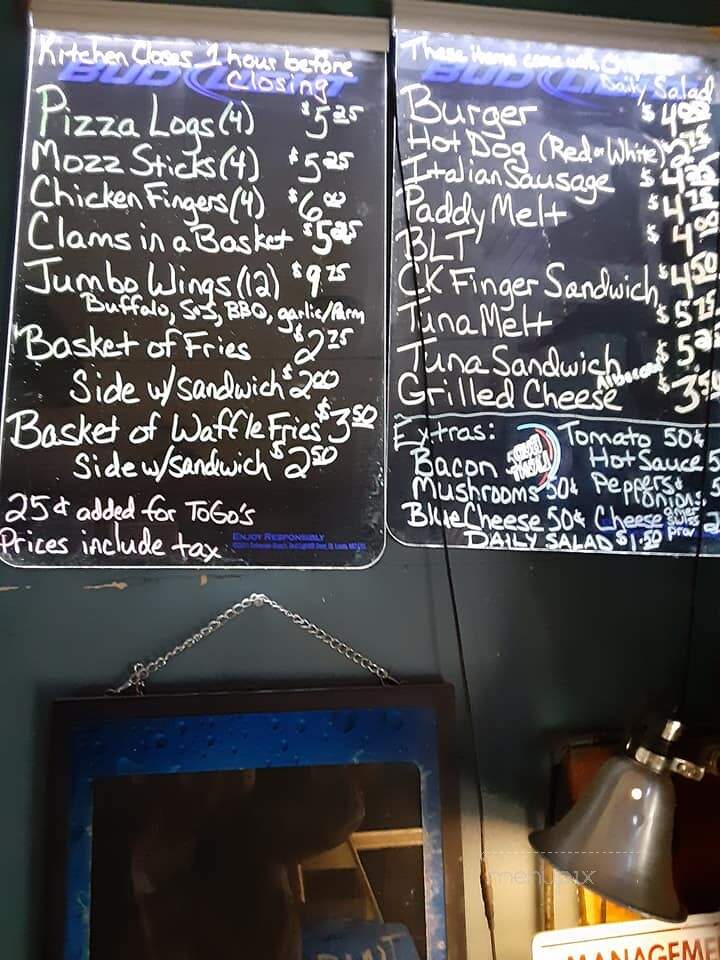 Kitchen Closes 1 hour before
Closing
BUD LIGHT
Pizza Logs (4) $5.25
Mozz Sticks (4) $5.25
Chicken Fingers (4) $6.00
Clams in a Basket $5.25
Jumbo Wings (12) $9.75
Buffalo, S&S, BBQ, garlic/Parm
Basket of Fries $2.75
Side w/sandwich $2.00
Basket of Waffle Fries $3.50
Side w/sandwich $2.50
25¢ added for ToGo's
Prices include tax
ENJOY RESPONSIBLY
These items come with
Daily Salad
Burger $4.00
Hot Dog (Red or White) 2.75
Italian Sausage $4.25
Paddy Melt $4.75
BLT $4.00
CK Finger Sandwich $4.50
Tuna Melt $5.75
Tuna Sandwich $5.25
Albacore
Grilled Cheese $3.50
Extras: Tomato 50¢
Bacon Hot Sauce
Mushrooms 50¢ Peppers &
Onions
Blue Cheese 50¢ Cheese amer
swiss
prov
DAILY SALAD $1.50
menupix
MANAGEME